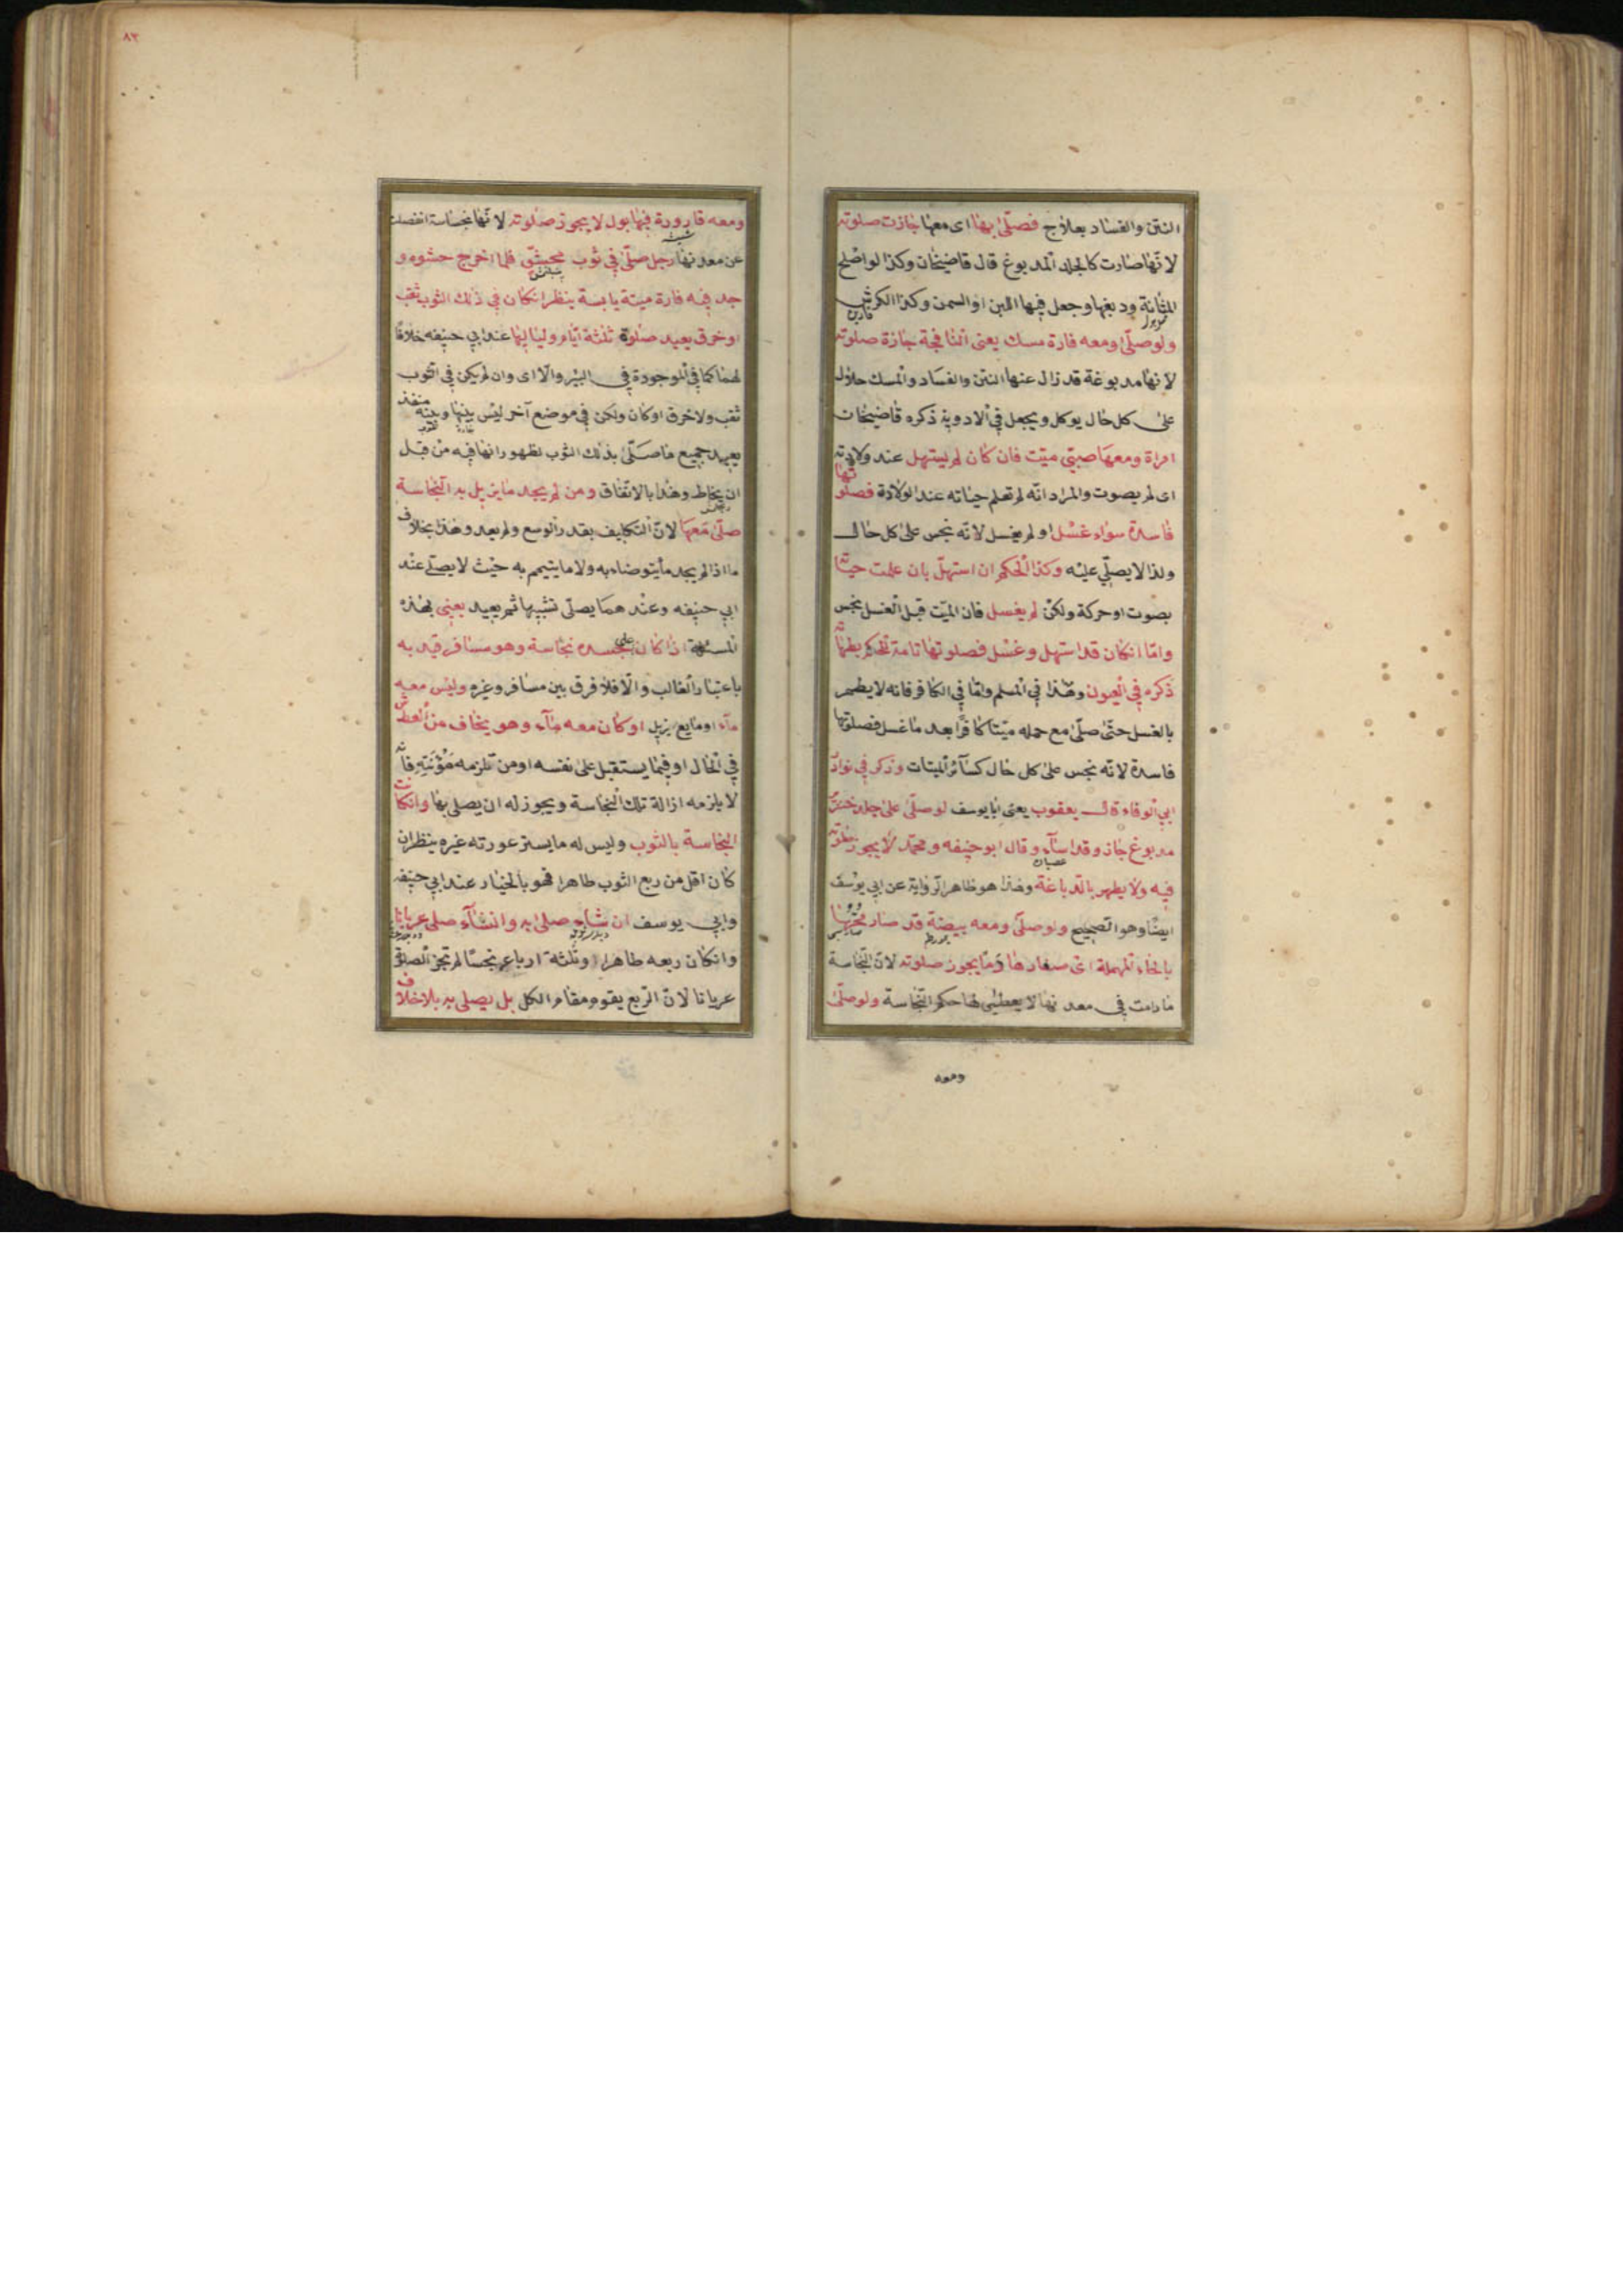 النتن والفساد بعلاج فصلّى بها اى معها جازت صلوته
لانّها صارت كالجلد المدبوغ قال قاضيخان وكذا لو اصلح
المثانة ودبغها وجعل فيها اللبن او السمن وكذا الكرش
ولو صلّى ومعه فارة مسك يعنى النافجة جازة صلوته
لانها مدبوغة قد زال عنها النتن والفساد والمسك حلال
على كل حال يوكل ويجعل في الادوية ذكره قاضيخان
امراة ومعها صبيّ ميّت فان كان لم يستهل عند ولادته
اى لم يصوت والمراد انّه لم تعلم حياته عند الولادة فصلوتها
فاسدة سواء غسّل او لم يغسل لانّه نجس على كل حال
ولذا لا يصلّي عليه وكذا الحكم ان استهلّ بان علمت حياته
بصوت او حركة ولكن لم يغسل فان الميّت قبل الغسل نجس
وامّا انكان قد استهل وغسّل فصلوتها تامة للحكم بطهارته
ذكره في العيون وهذا في المسلم وامّا في الكافر فانه لا يطهر
بالغسل حتّى صلّى مع حمله ميّتا كافرًا بعد ما غسل فصلوتها
فاسدة لانّه نجس على كل حال كسآئر الميتات وذكر في نوادر
ابي الوفاء قال يعقوب يعنى ابا يوسف لو صلّى على جلد خنزير
مدبوغ جاز وقد اسآء وقال ابو حنيفه ومحمّد لا يجوز صلوته
فيه ولا يطهر بالدّباغة وهذا هو ظاهر الرّواية عن ابي يوسف
ايضًا وهو الصحيح ولو صلّى ومعه بيضة قد صار محّها
بالحاء المهملة اى صفارها دمًا يجوز صلوته لانّ النّجاسة
مادامت في معدنها لا يعطى لها حكم النّجاسة ولو صلّى
ومعه
٨٣
ومعه قارورة فيها بول لا يجوز صلوته لانّها نجاسة انفصلت
عن معدنها رجل صلّى في ثوب محشّو فلما اخرج حشوه و
جد فيه فارة ميتة يابسة ينظر انكان في ذلك الثوب ثقب
او خرق يعيد صلوة ثلثة ايّام ولياليها عند ابي حنيفه خلافًا
لهما كما في الموجودة في البئر والّا اى وان لم يكن في الثوب
ثقب ولا خرق او كان ولكن في موضع آخر ليس بينها وبينه منفذ
يعيد جميع ما صلّى بذلك الثوب لظهور انها فيه من قبل
ان يخاط وهذا بالاتفاق ومن لم يجد ما يزيل به النّجاسة
صلّى معها لانّ التكليف بقدر الوسع ولم يعد وهذا بخلاف
ما اذا لم يجد ما يتوضاء به ولا ما يتيمم به حيث لا يصلّي عند
ابي حنيفه وعندهما يصلّى تشبّها ثم يعيد يعنى بهذه
المسئلة اذا كان على جسده نجاسة وهو مسافر قيد به
باعتبار الغالب والّا فلا فرق بين مسافر وغيره وليس معه
مآء او مايع يزيل او كان معه مآء وهو يخاف من العطش
في الحال او فيما يستقبل على نفسه او من تلزمه مؤنته فانّه
لا يلزمه ازالة تلك النجاسة ويجوز له ان يصلى بها وانكانت
النجاسة بالثوب وليس له ما يستر عورته غيره ينظر ان
كان اقل من ربع الثوب طاهرا فهو بالخيار عند ابي حنيفه
وابي يوسف ان شاء صلى به وان شآء صلى عريانا
وانكان ربعه طاهرا وثلثة ارباعه نجسًا لم تجز الصلوة
عريانا لانّ الرّبع يقوم مقام الكل بل يصلى به بلا خلاف